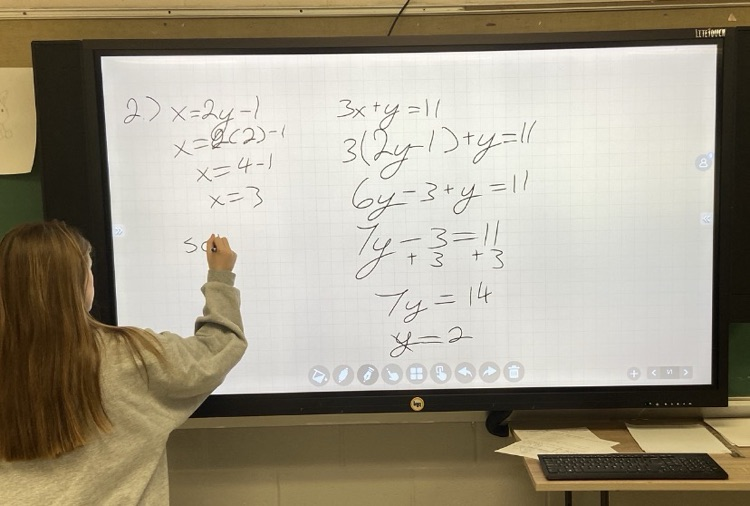 LITETOUCH
2.) x=2y-1
x=2(2)-1
x=4-1
x=3
3x+y=11
3(2y-1)+y=11
6y-3+y=11
7y-3=11
+3 +3
7y=14
y=2